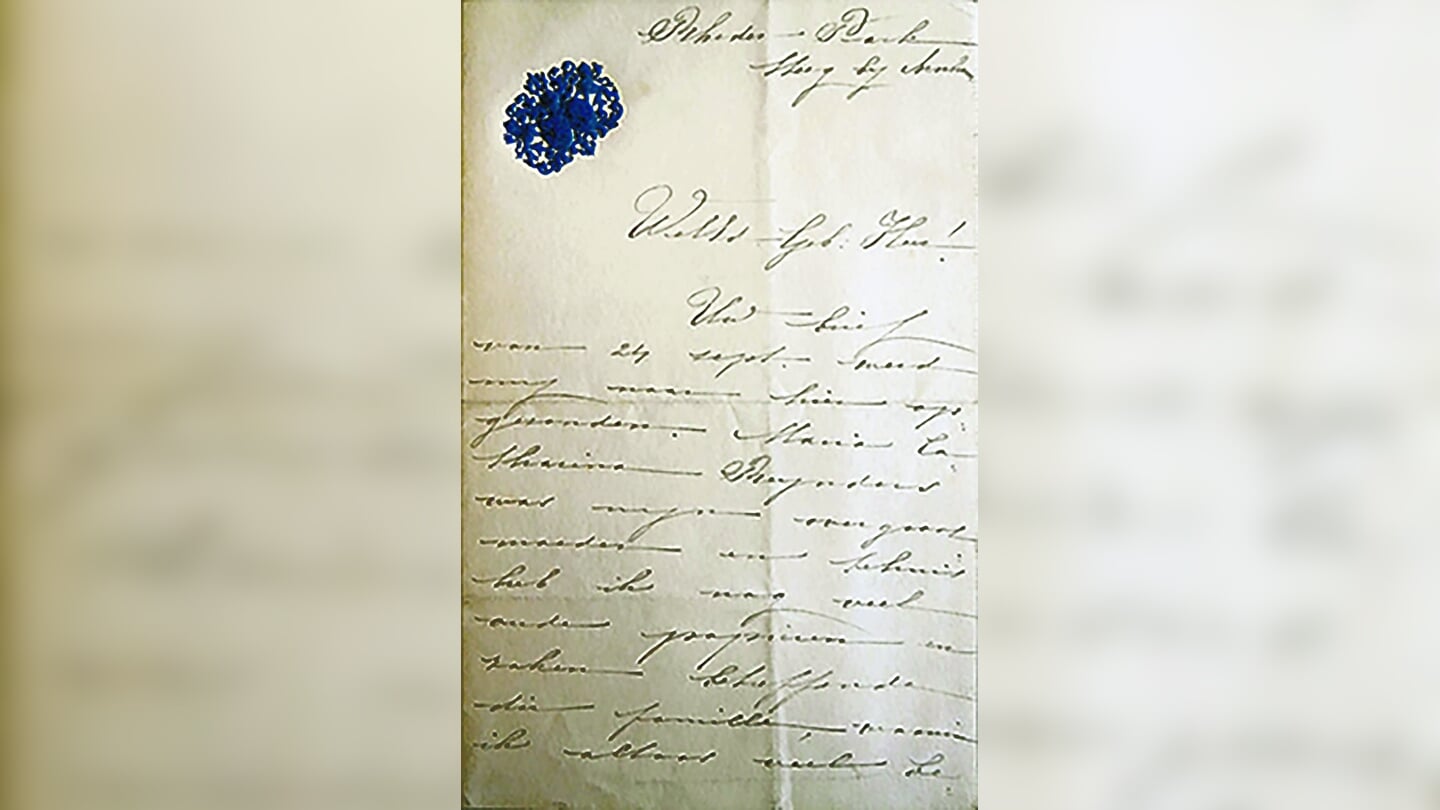 Rheder-Park
Steeg by Arnhem
WelEd. Geb: Heer!
Uw brief
van 24 sept. werd
mij naar hier op-
gezonden. Maria Ca-
tharina Reynders
was mijne overgroot
moeder en tehuis
heb ik nog veel
oude papieren en
zaken betreffende
die familie, waarin
ik altoos veel be-